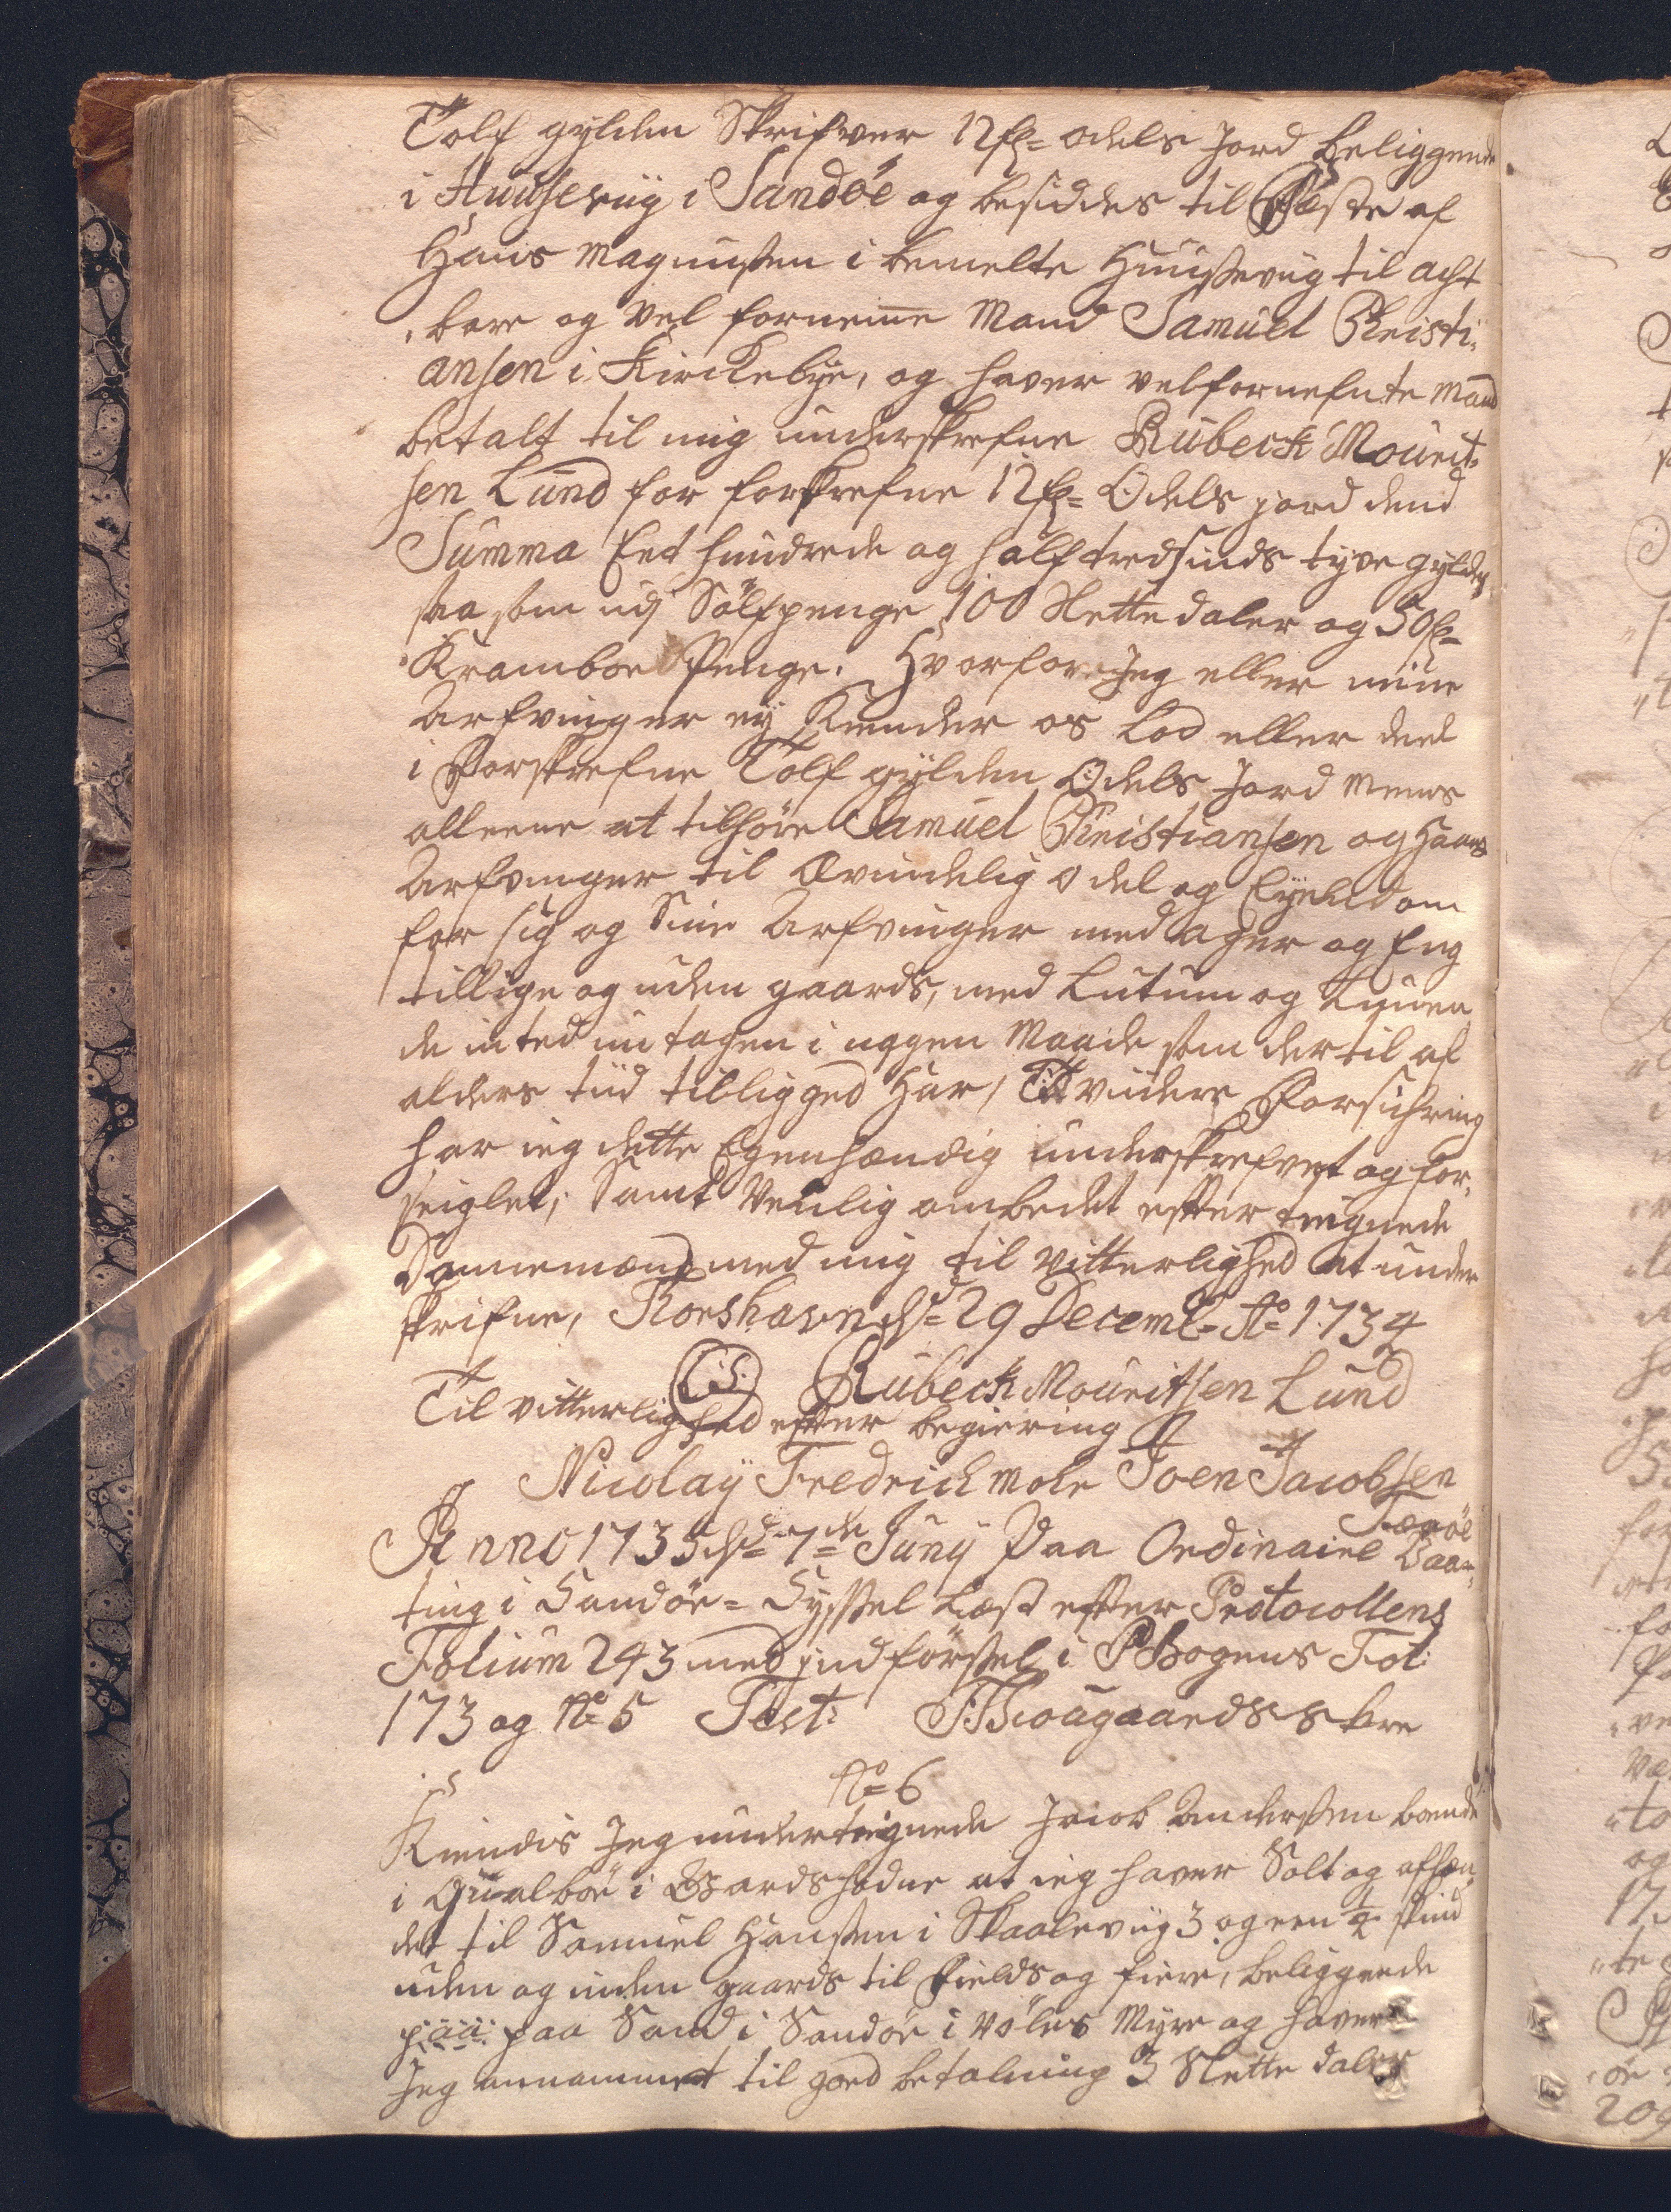 Tolf gylden Skrifver 12 fl= odels Jord beliggende
i Huusevüg i Sandöe og besiddes til Fæste af
Hans Magnussen i bemelte Huusevüg til acht
„bare og vel fornemme Mand Samuel Christi„
ansen i Kirckebÿe, og haver velfornefnte Mand
betalt til mig underskrefne Rubeck Mourit„
sen Lund for forskrefne 12 fl= Odels jord dend
Summa Eet hundrede og halftredsinds tyve gylden
saasom udj Sölfpenge 100 Slette daler og 50 fl=
Kramboe Penge. Hvorfor Jeg eller mine
Arfvinger eÿ Kiender os Lod eller deel
i Forskrefne Tolf gÿlden Odels Jord mens
alleene at tilhöre Samuel Christiansen og Hans
Arfvinger til Ævindelig odel og Eÿendom
for sig og Sine Arfvinger med ager og Eng
tillige og uden gaards, med Lutum og Lunen„
de inted untagen i noggen Maade som dertil af
alders tüd tilligged Har, Til viidere Forsichring
har ieg dette Egenhændig underskrefvet og for„
seiglet, Samt Venlig ombedet effter tegnede
Dannemænd med mig til vitterlighed at under
skrifve, Thorshavn dd= 29 Decemb= Ao= 1734
(L.S.) Rubeck Mouritsen Lund
Til vitterlighed efter begiering
Nicolaÿ Fredrich Mohr Joen Jacobsen
Færöe
Anno 1735 dd= 7de= Junÿ Paa Ordinaire Vaar„
ting i Sandöe= Sÿssel Læst effter Protocollens
Folium 243 med jndförssel i PBogens Fol:
173 og No= 5 Test: Bougaards skre
No= 6
Kiendis Jeg undertegnede Jacob Andersen boende
i Qualböe i Gaardshodne at ieg haver Solt og afhæn„
det til Samuel Hansen i Skaalevüg 3 og een ½ skind
uden og inden gaards til Fields og fiere, beliggende
paa paa Sand i Sandöe i Völes Mÿre og haver
Jeg annammet til goed betalning 3 Slette daler